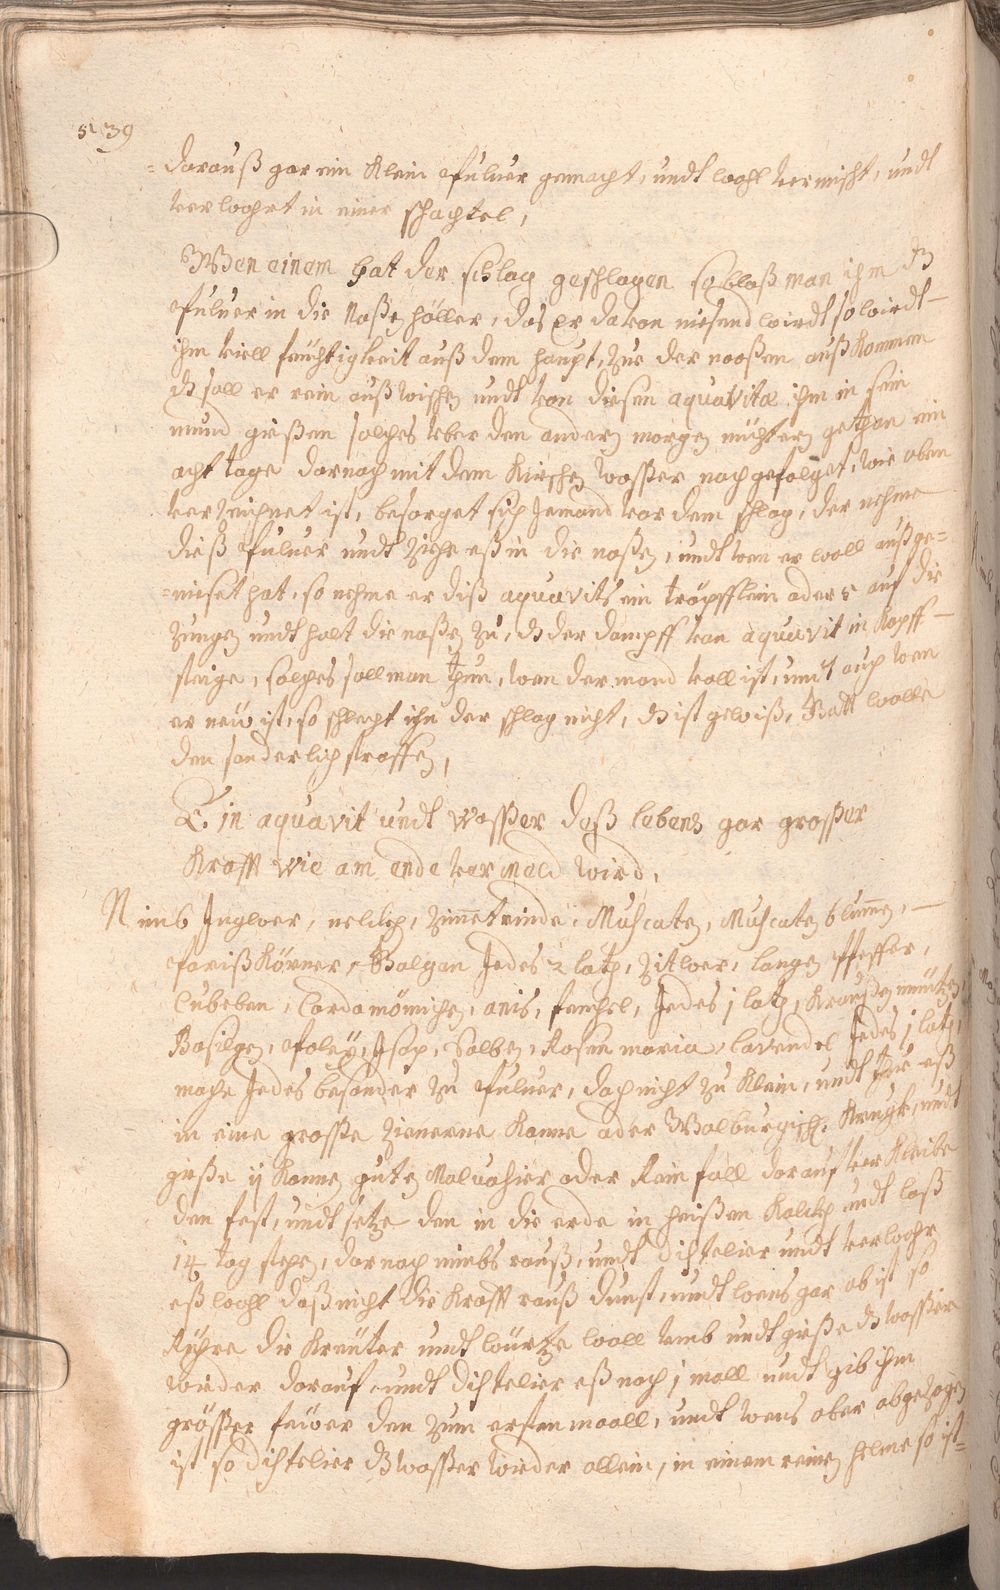 5139
darauß gar ein klein Pulver gemacht, undt wohl vermischt, undt
verwahrt in einer schachtel,
Wen einem hat der schlag geschlagen so blaß man ihm dz
Pulver in die Naße höller, das Er davon niesend wirdt so wirdt
ihm viell feüchtigkeit auß dem haupt, zue der naaßen auß kommen
dz soll er rein auß wischen undt van diesen aquavitæ ihm in sein
mund gießen solches vber den andern morgen nüchtern gethan ein
acht tage darnach mit dem Kirschen waßer nach gefolget, wie oben
verzeichnet ist, besorget sich Jemand vor dem schlag, der nehme
dieß Pulver undt ziehe eß in die naßen, undt wen er woll außge=
=nieset hat, so nehme er diß aquavits ein tröpfflein oder 5 auf die
zungen undt halt die naßen zu, dz der dampff van aquavit in Kopff
steige, solches soll man thun, wen der mond voll ist, undt auch wen
er neü ist, so schlecht ihn der schlag nicht, dz ist gewiß, Gott wolle
den sonderlich straffen,
Ein aquavit undt Waßer deß lebens gar großer
Krafft wie am ende vermeld wird,
Nimb Ingwer, nelcken, zimmetrinde, Muscaten, Muscaten blumen,
Pariß Körner, Galgan Jedes 2 loth, Zitwer, langen Pfeffer,
Cubeben, Cardamömichen, anis, fenchel, Jedes j loth, Kraußen müntzen,
Basilgen, Poley, Isop, Salben, Rosen maria, lavendel Jedes j loth,
mache Jedes besonder zu Pulver, doch nicht zu klein, undt thu eß
in eine große zienerne Kanne oder Walburgisch. Krugk, undt
gieße ij Kannen guten Malvasier oder Reinfall darauf verkleibe
den fest, undt setze den in die erde in heißen Kalckh undt laß
14 tag stehen, darnach nimbs rauß, undt distelier undt verwahr
eß wohl daß nicht die Krafft rauß dunst, undt wens gar ab ist so
Rühre die Kreüter undt würtze woll vmb undt gieße dz waßer
wieder darauf, undt distelier eß noch j mall undt gib ihm
größer feüer den zum ersten maall, undt wens aber abgezogen
ist so distelier dz waßer wieder allein, in einem reinen helme so ist=